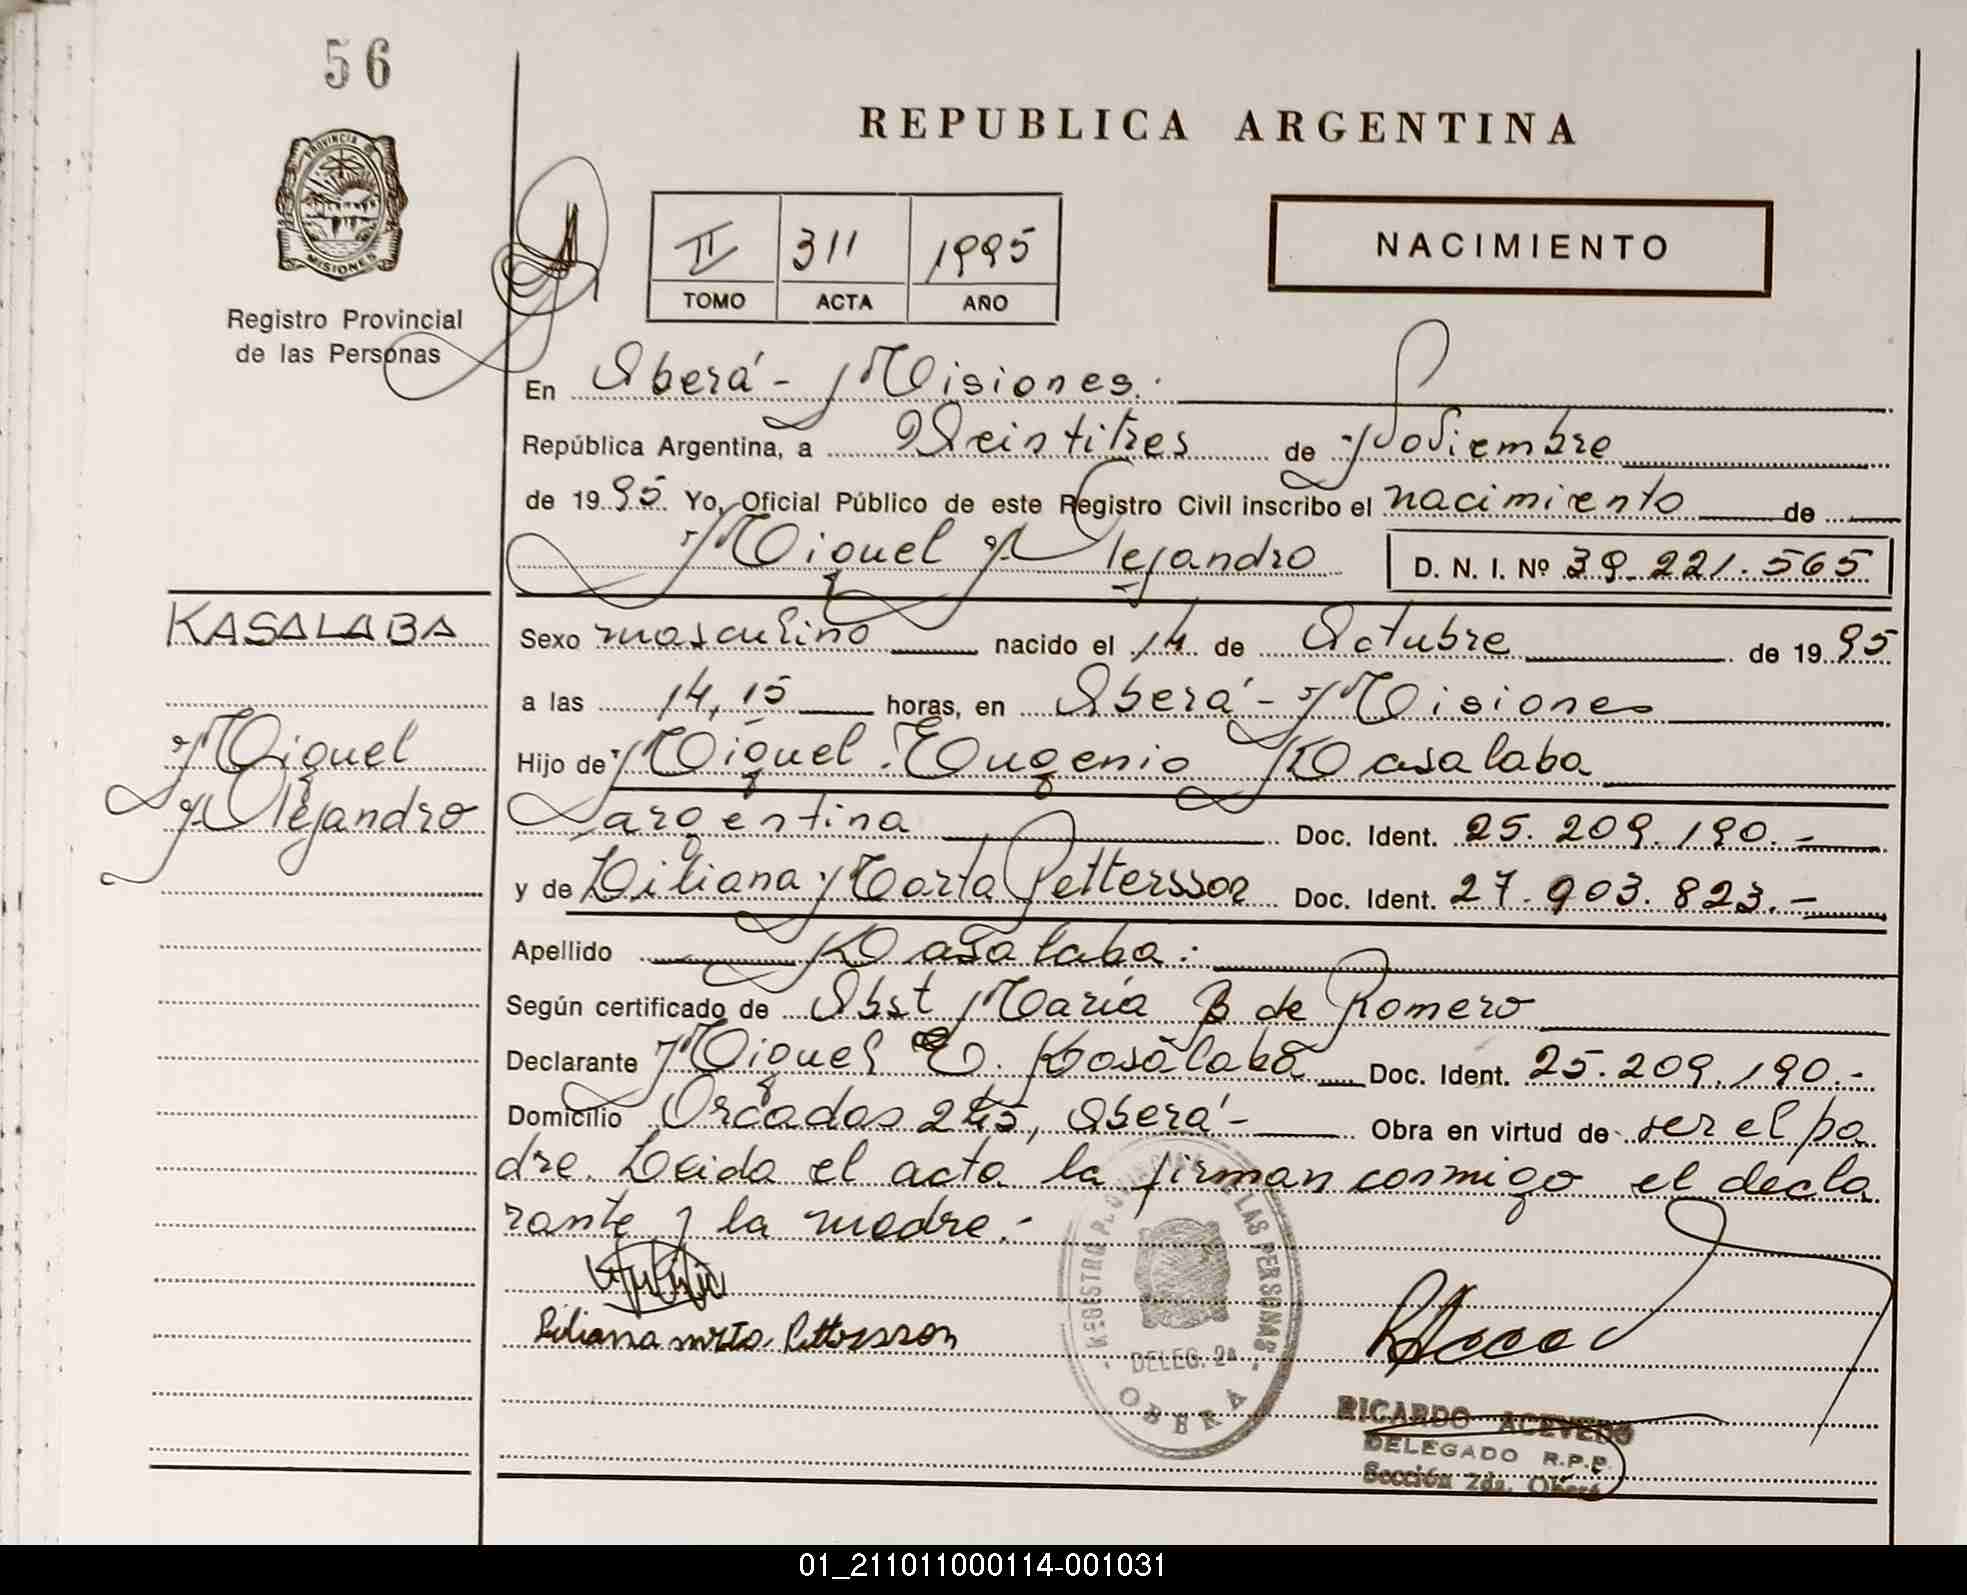 56
REPUBLICA ARGENTINA
PROVINCIA D
MISIONES
Registro Provincial
de las Personas
II 311 1995
TOMO ACTA AÑO
NACIMIENTO
En Oberá - Misiones.
República Argentina, a Veintitres de Noviembre
de 1995. Yo, Oficial Público de este Registro Civil inscribo el nacimiento de
Miguel Alejandro D. N. I. Nº 39.221.565
KASALABA
Miguel
Alejandro
Sexo masculino nacido el 14 de Octubre de 1995
a las 14,15 horas, en Oberá - Misiones
Hijo de Miguel Eugenio Kasalaba
argentina Doc. Ident. 25.209.190.-
y de Liliana Marta Pettersson Doc. Ident. 27.903.823.-
Apellido Kasalaba.
Según certificado de Obst María B de Romero
Declarante Miguel E. Kasalaba Doc. Ident. 25.209.190.-
Domicilio Orcadas 245, Oberá - Obra en virtud de ser el pa
dre. Leida el acta la firman conmigo el decla
rante y la madre.-
Liliana Marta Pettersson
REGISTRO P. DE LAS PERSONAS
DELEG. 2ª
OBERA
RICARDO ACEVEDO
DELEGADO R.P.P.
Sección 2da. Oberá
01_211011000114-001031